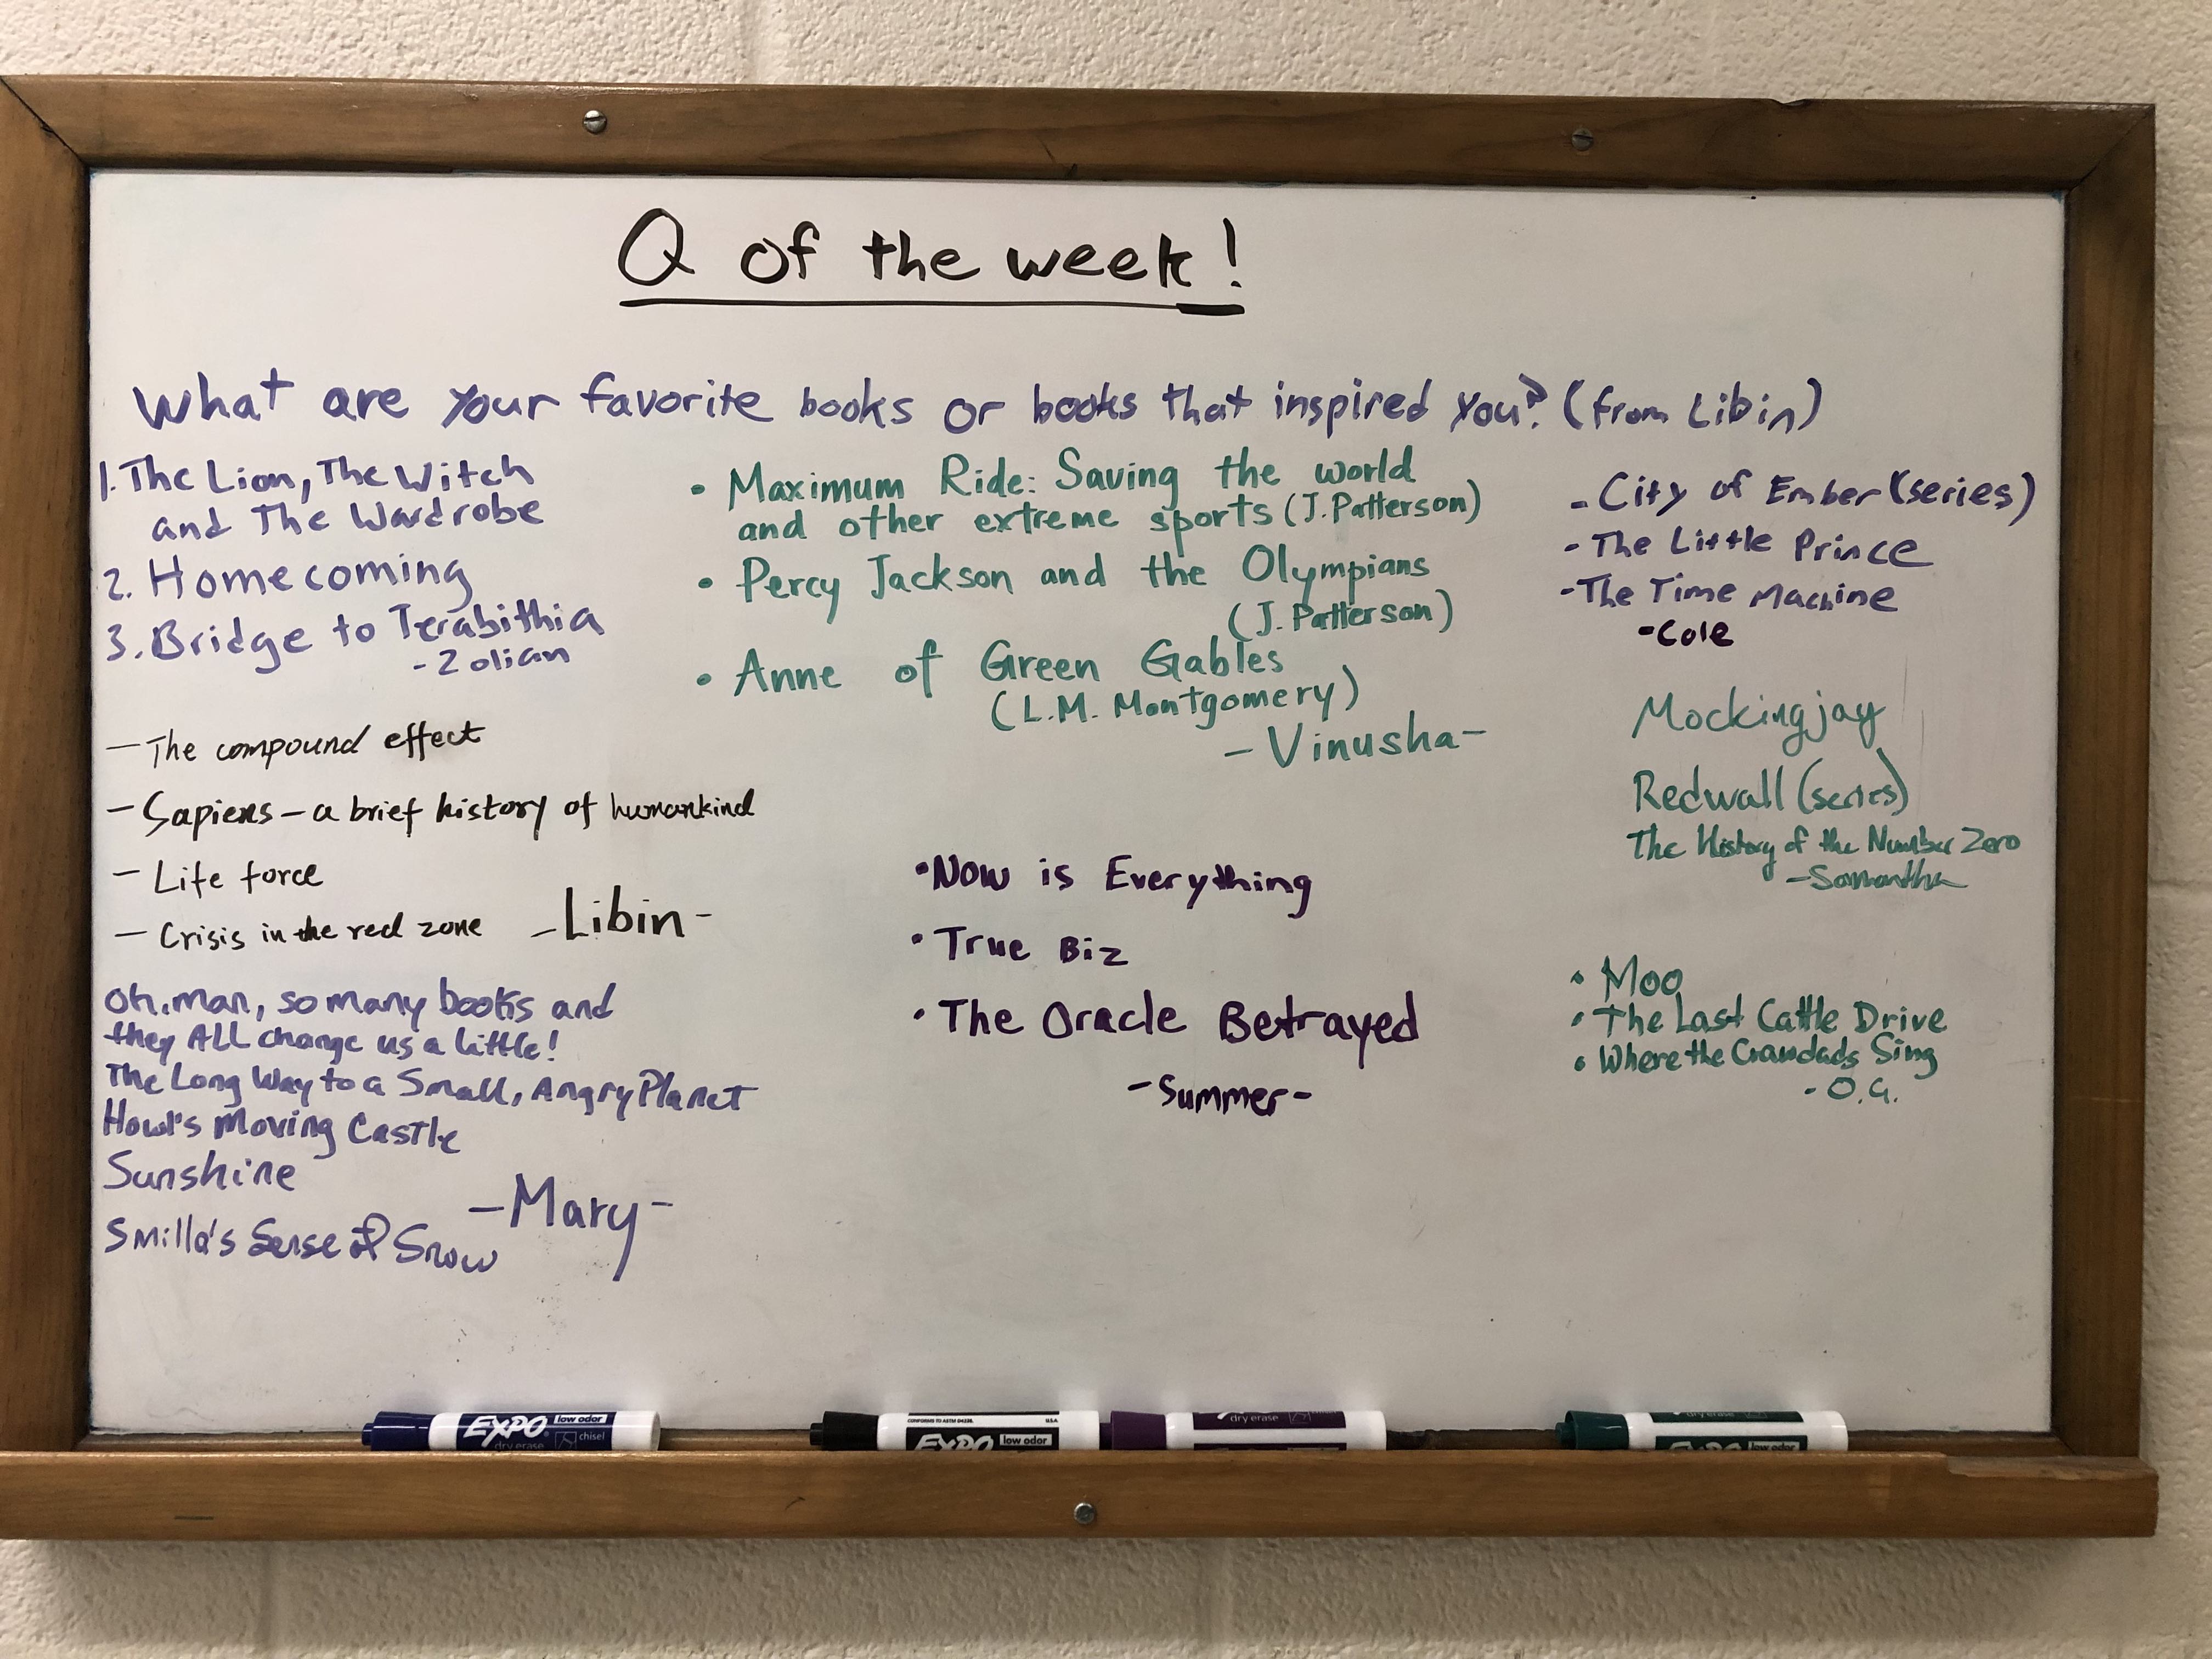 Q of the week!
What are your favorite books or books that inspired you? (from Libin)
1. The Lion, The Witch
and The Wardrobe
2. Homecoming
3. Bridge to Terabithia
- Zolian
— The compound effect
— Sapiens — a brief history of humankind
— Life force
— Crisis in the red zone
– Libin –
Oh, man, so many books and
they ALL change us a little!
The Long Way to a Small, Angry Planet
Howl's Moving Castle
Sunshine
Smilla's Sense of Snow
– Mary –
• Maximum Ride: Saving the world
and other extreme sports (J. Patterson)
• Percy Jackson and the Olympians
(J. Patterson)
• Anne of Green Gables
(L.M. Montgomery)
– Vinusha –
• Now is Everything
• True Biz
• The Oracle Betrayed
– Summer –
- City of Ember (series)
- The Little Prince
- The Time Machine
- Cole
Mockingjay
Redwall (series)
The History of the Number Zero
- Samantha
• Moo
• The Last Cattle Drive
• Where the Crawdads Sing
- O.G.
EXPO low odor
dry erase chisel
CONFORMS TO ASTM D4236. U.S.A
EXPO low odor
dry erase
EXPO low odor